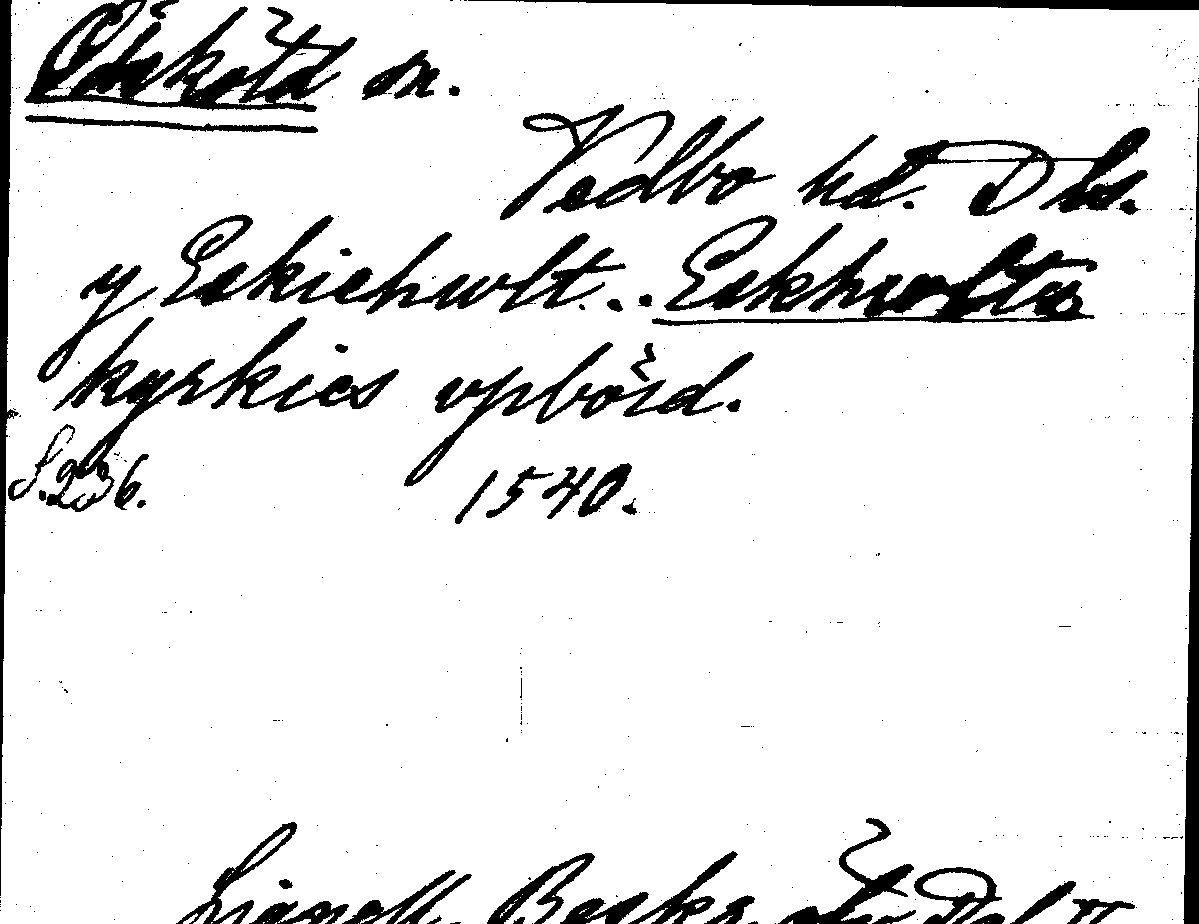 Ödsköld sn.
Vedbo hd. Dls.
y Eskiehwlt... Eskhwltz
kyrkies vpbörd.
S. 236. 1540.
Lignell, Beskr. öfv. Dal II